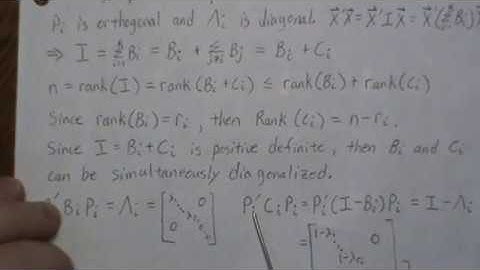 Pᵢ is orthogonal and Λᵢ is diagonal. X⃗'X⃗ = X⃗'IX⃗ = X⃗'(ΣBᵢ)X⃗
⇒ I = Σᵢ₌₁ᵏ Bᵢ = Bᵢ + Σⱼ≠ᵢ Bⱼ = Bᵢ + Cᵢ
n = rank(I) = rank(Bᵢ + Cᵢ) ≤ rank(Bᵢ) + rank(Cᵢ)
Since rank(Bᵢ) = rᵢ, then Rank(Cᵢ) = n - rᵢ.
Since I = Bᵢ + Cᵢ is positive definite, then Bᵢ and Cᵢ
can be simultaneously diagonalized.
'BᵢPᵢ = Λᵢ = [λ₁ 0 0] Pᵢ'CᵢPᵢ = Pᵢ'(I - Bᵢ)Pᵢ = I - Λᵢ
= [1-λ₁ 0